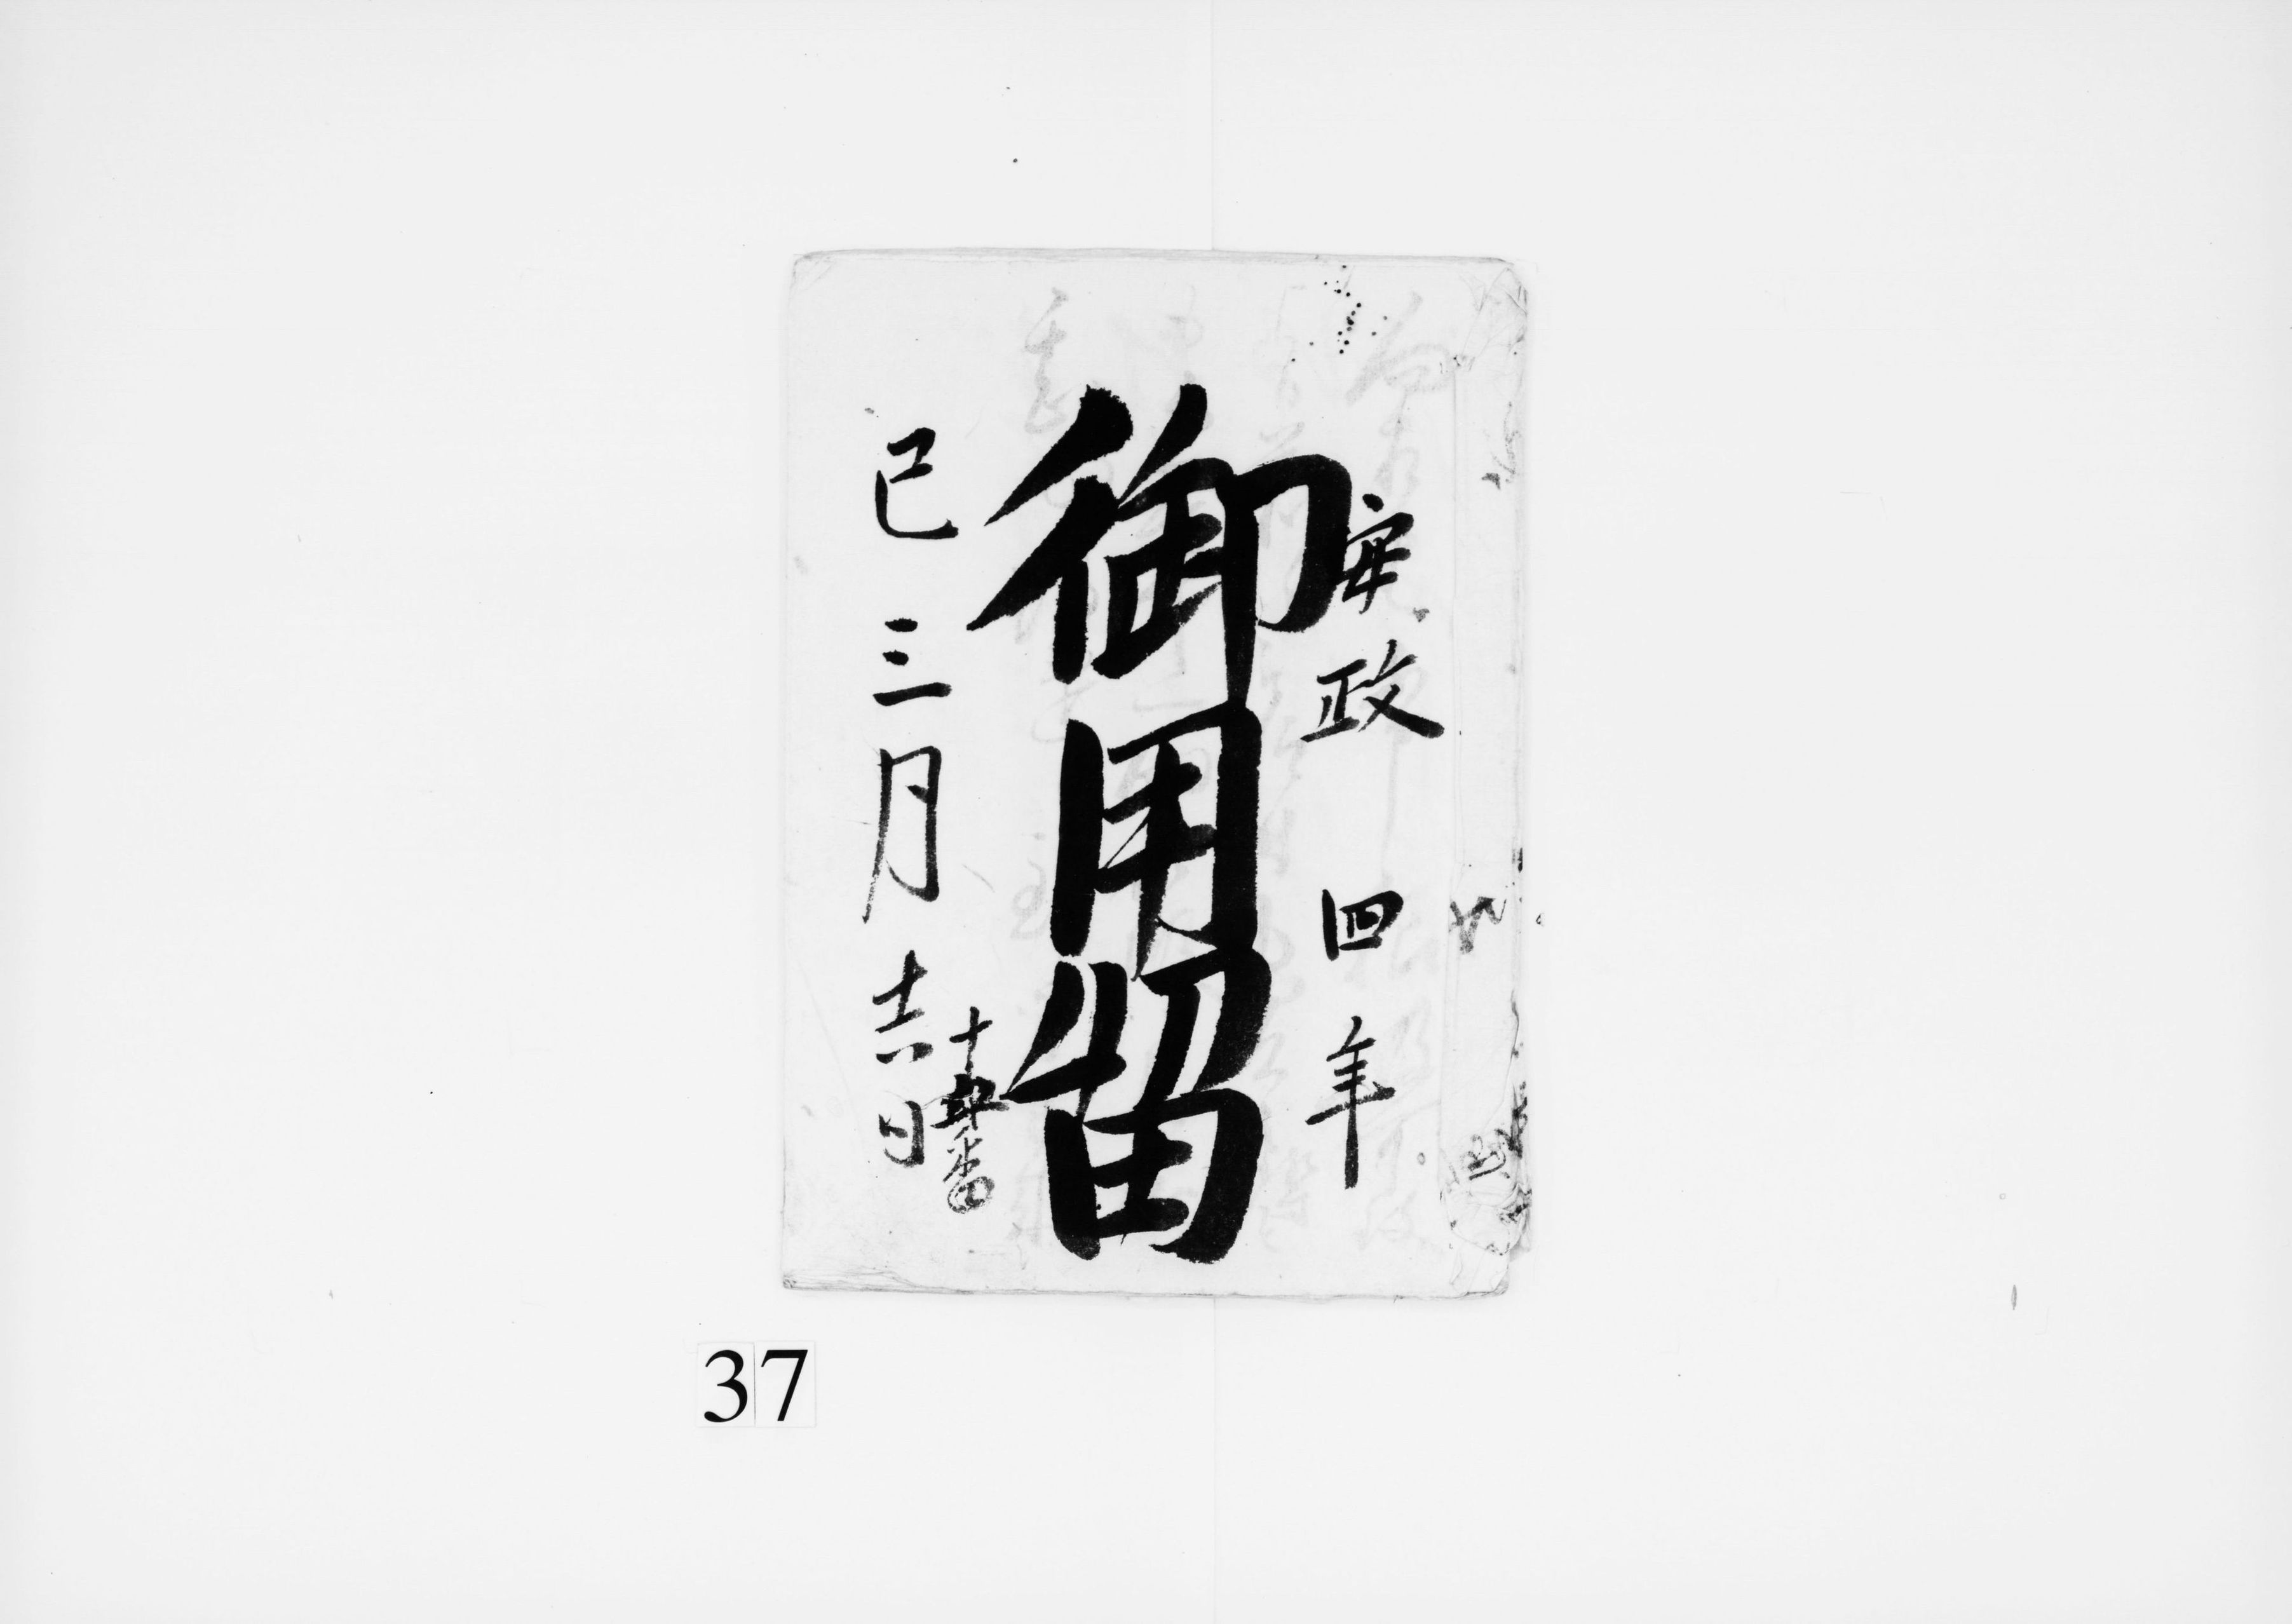 安政四年
御用留
十 番
巳三月吉日
37